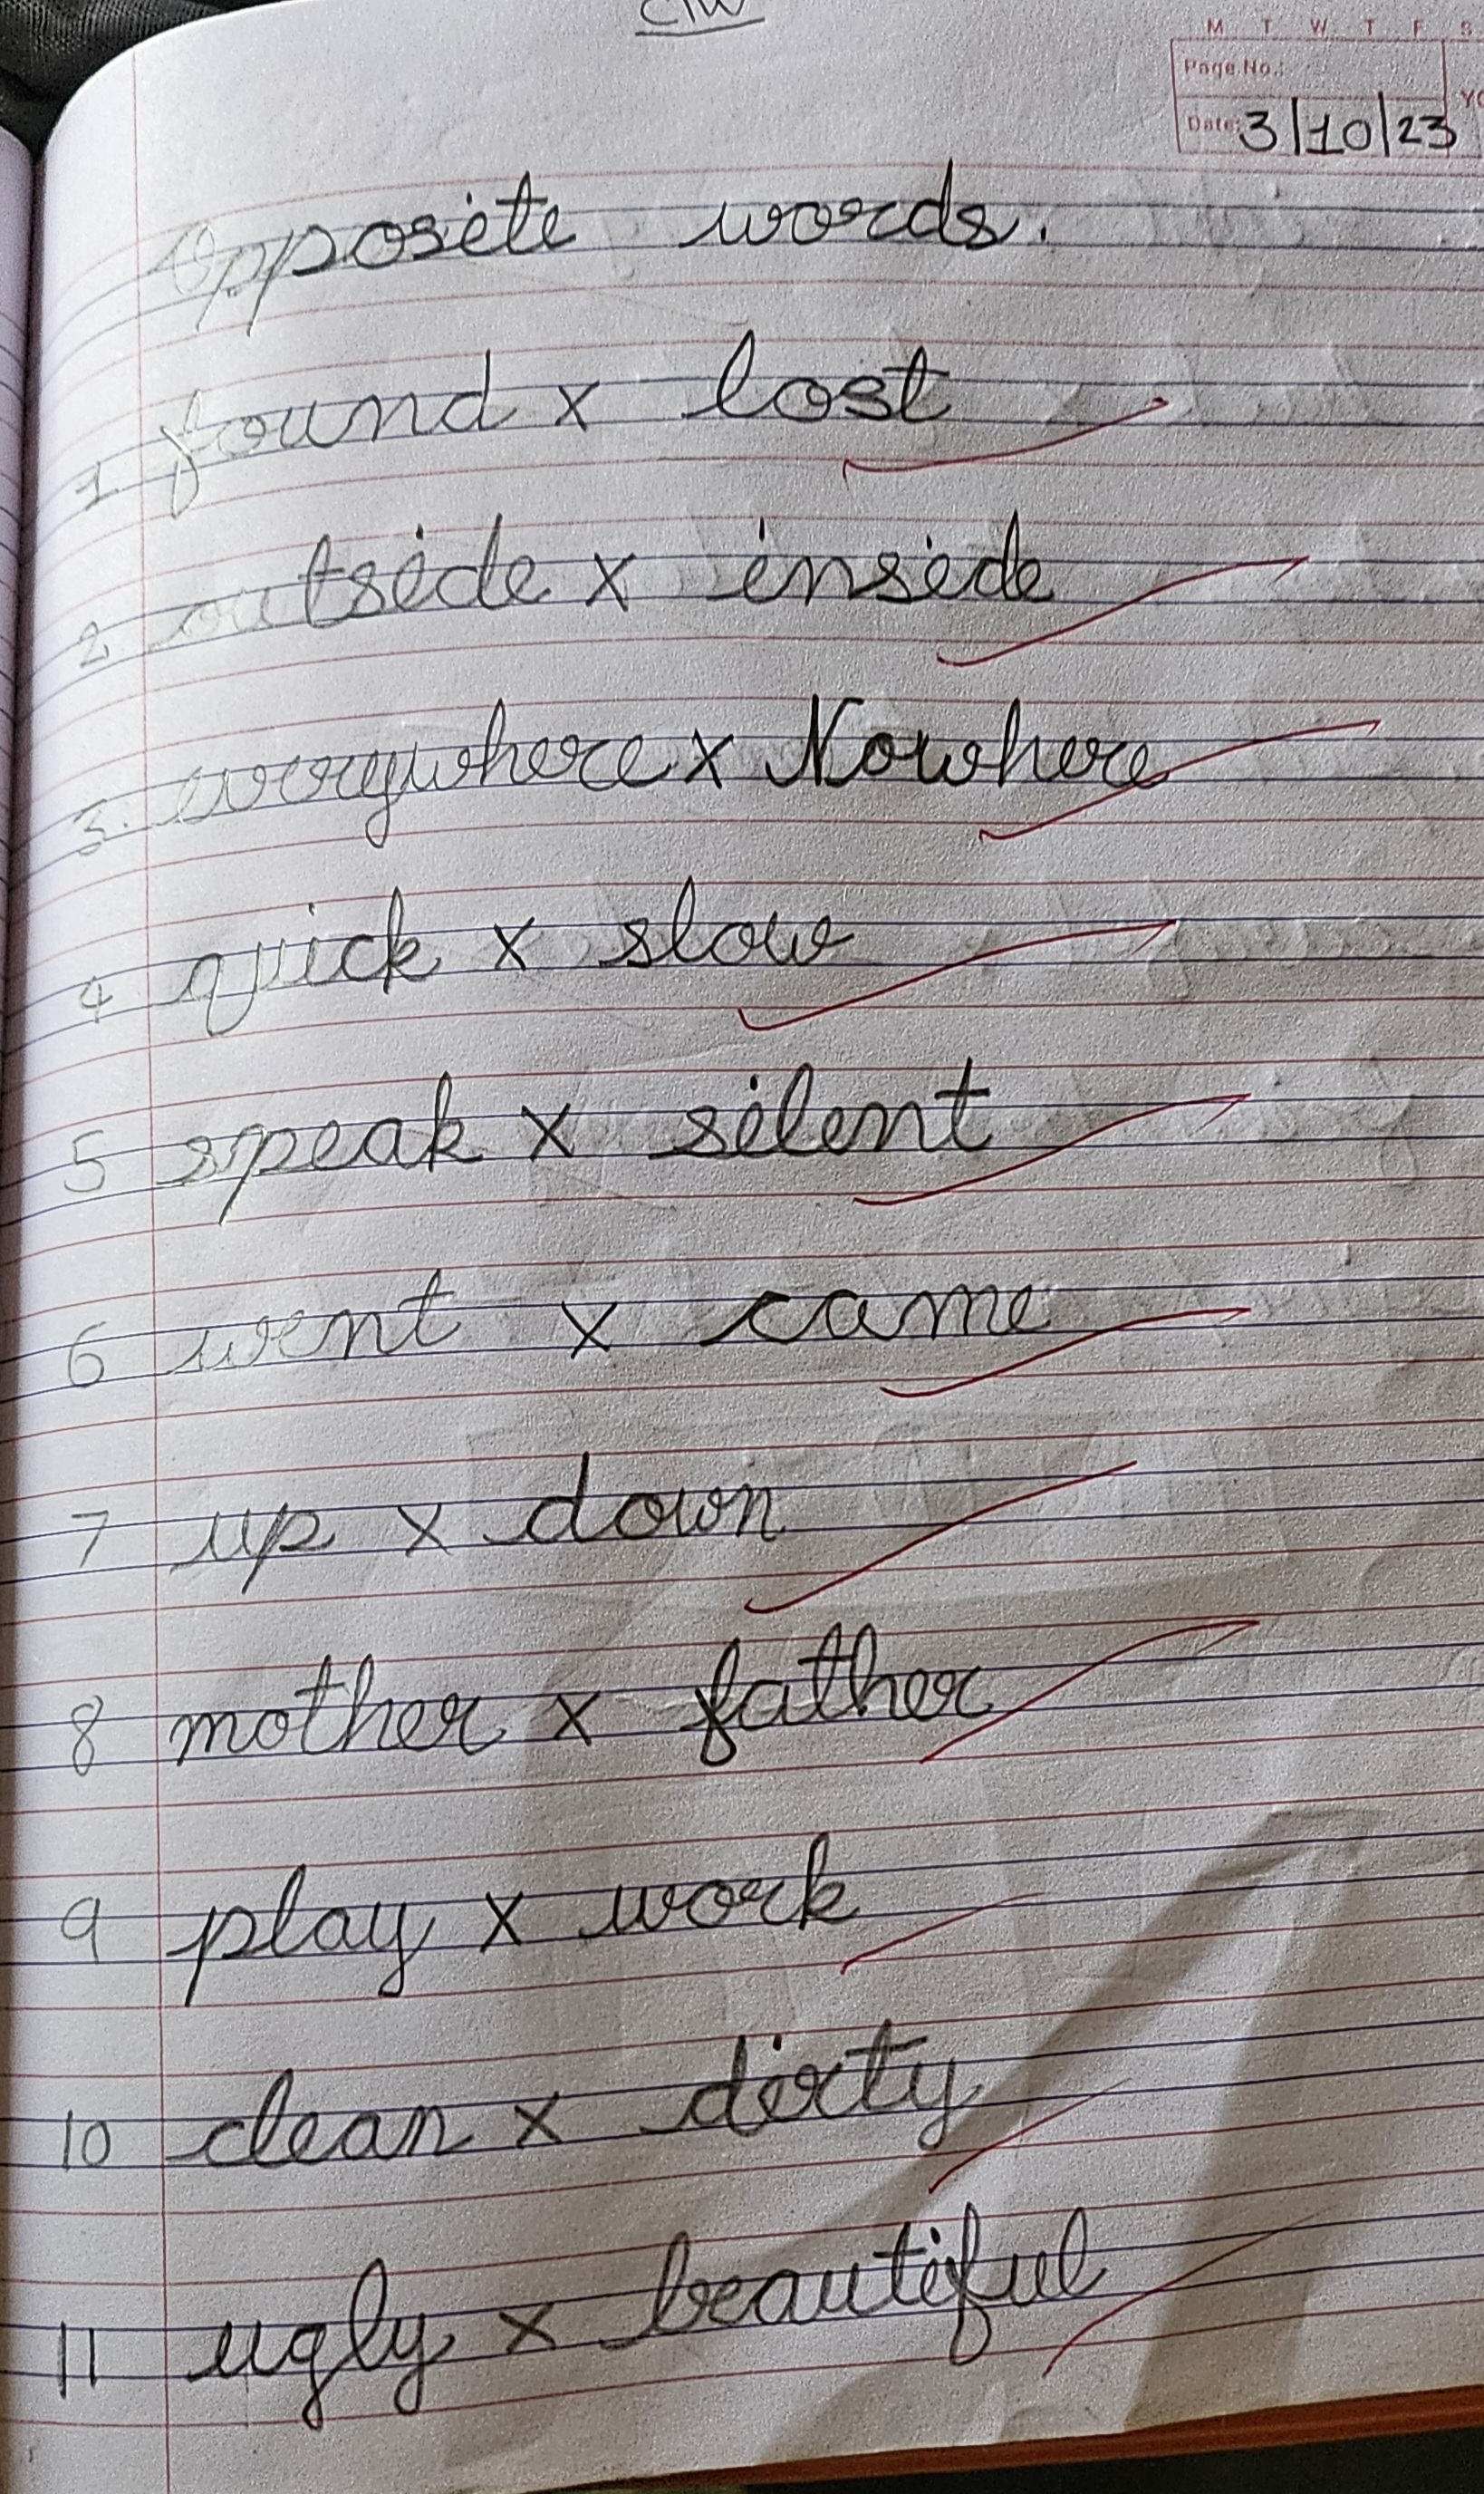 C/W
M T W T F S
Page No.:
Date: 3/10/23
Opposite words.
1 found x lost
2 outside x inside
3. everywhere x Nowhere
4 quick x slow
5 speak x silent
6 went x came
7 up x down
8 mother x father
9 play x work
10 clean x dirty
11 ugly x beautiful